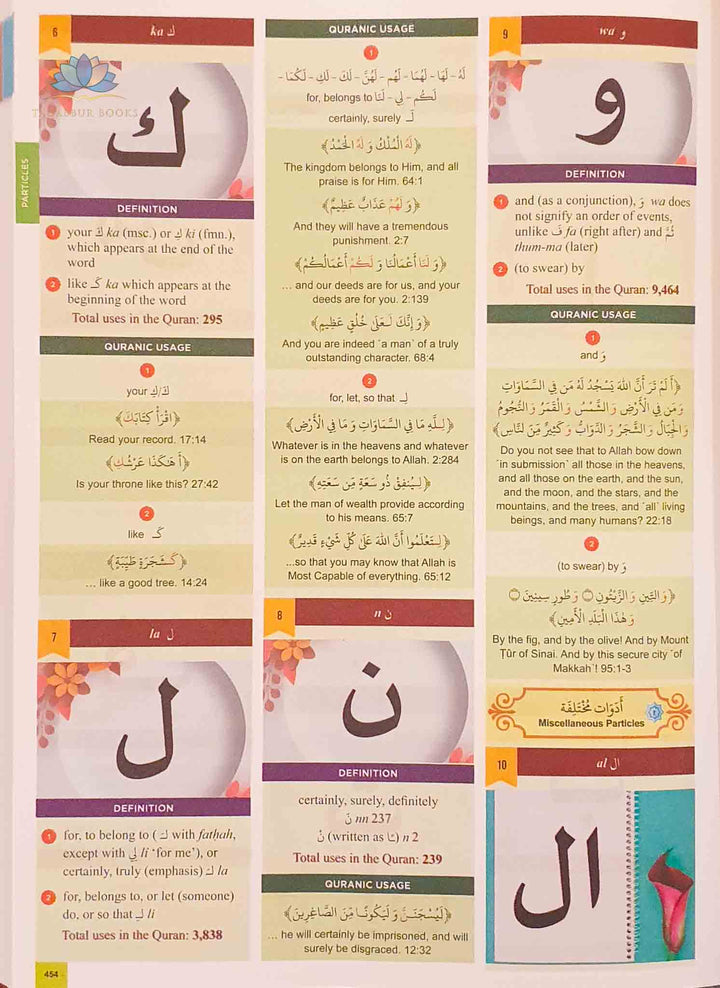 6
ka ك
TADABBUR BOOKS
ك
PARTICLES
DEFINITION
1 your كَ ka (msc.) or كِ ki (fmn.),
which appears at the end of the
word
2 like كَـ ka which appears at the
beginning of the word
Total uses in the Quran: 295
QURANIC USAGE
1
your كَ/كِ
﴿اقْرَأْ كِتَابَكَ﴾
Read your record. 17:14
﴿أَهَكَذَا عَرْشُكِ﴾
Is your throne like this? 27:42
2
like كَـ
﴿كَشَجَرَةٍ طَيِّبَةٍ﴾
... like a good tree. 14:24
7
la ل
ل
DEFINITION
1 for, to belong to (لَـ with fatḥah,
except with لِي li ‘for me’), or
certainly, truly (emphasis) لَـ la
2 for, belongs to, or let (someone)
do, or so that لِـ li
Total uses in the Quran: 3,838
454
QURANIC USAGE
1
لَهُ - لَهَا - لَهُمَا - لَهُم - لَهُنَّ - لَكَ - لَكِ - لَكُمَا -
for, belongs to لَكُم - لِي - لَنَا
certainly, surely لَـ
﴿لَهُ الْمُلْكُ وَ لَهُ الْحَمْدُ﴾
The kingdom belongs to Him, and all
praise is for Him. 64:1
﴿وَ لَهُمْ عَذَابٌ عَظِيمٌ﴾
And they will have a tremendous
punishment. 2:7
﴿وَ لَنَا أَعْمَالُنَا وَ لَكُمْ أَعْمَالُكُمْ﴾
... and our deeds are for us, and your
deeds are for you. 2:139
﴿وَ إِنَّكَ لَـعَلَىٰ خُلُقٍ عَظِيمٍ﴾
And you are indeed ˹a man˺ of a truly
outstanding character. 68:4
2
for, let, so that لِـ
﴿لِـلَّهِ مَا فِي السَّمَاوَاتِ وَ مَا فِي الْأَرْضِ﴾
Whatever is in the heavens and whatever
is on the earth belongs to Allah. 2:284
﴿لِـيُنفِقْ ذُو سَعَةٍ مِّن سَعَتِهِ﴾
Let the man of wealth provide according
to his means. 65:7
﴿لِـتَعْلَمُوا أَنَّ اللَّهَ عَلَىٰ كُلِّ شَيْءٍ قَدِيرٌ﴾
...so that you may know that Allah is
Most Capable of everything. 65:12
8
n ن
ن
DEFINITION
certainly, surely, definitely
نَّ nn 237
نْ (written as ـًا) n 2
Total uses in the Quran: 239
QURANIC USAGE
﴿لَيُسْجَنَنَّ وَ لَيَكُونًا مِّنَ الصَّاغِرِينَ﴾
... he will certainly be imprisoned, and will
surely be disgraced. 12:32
9
wa و
و
DEFINITION
1 and (as a conjunction), وَ wa does
not signify an order of events,
unlike فَ fa (right after) and ثُمَّ
thum-ma (later)
2 (to swear) by
Total uses in the Quran: 9,464
QURANIC USAGE
1
and وَ
﴿أَلَمْ تَرَ أَنَّ اللَّهَ يَسْجُدُ لَهُ مَن فِي السَّمَاوَاتِ
وَمَن فِي الْأَرْضِ وَالشَّمْسُ وَالْقَمَرُ وَالنُّجُومُ
وَالْجِبَالُ وَالشَّجَرُ وَالدَّوَابُّ وَكَثِيرٌ مِّنَ النَّاسِ﴾
Do you not see that to Allah bow down
˹in submission˺ all those in the heavens,
and all those on the earth, and the sun,
and the moon, and the stars, and the
mountains, and the trees, and ˹all˺ living
beings, and many humans? 22:18
2
(to swear) by وَ
﴿وَالتِّينِ وَالزَّيْتُونِ ۝ وَ طُورِ سِينِينَ ۝
وَ هَٰذَا الْبَلَدِ الْأَمِينِ﴾
By the fig, and by the olive! And by Mount
Ṭûr of Sinai. And by this secure city ˹of
Makkah˺! 95:1-3
أَدَوَات مُخْتَلِفَة
Miscellaneous Particles
10
al ال
ال